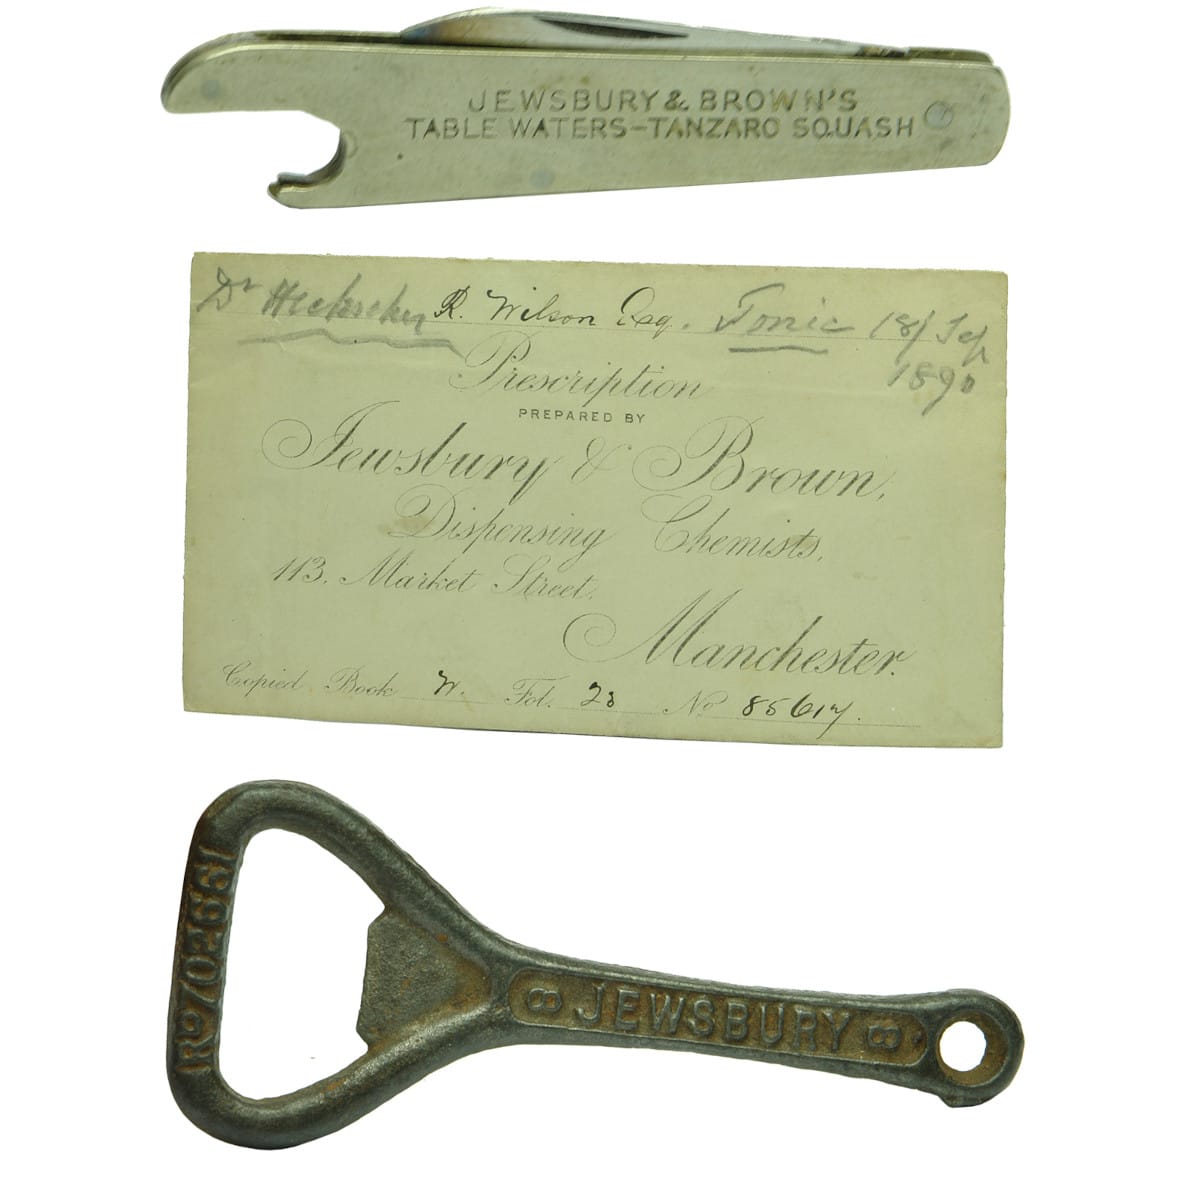 JEWSBURY & BROWN'S
TABLE WATERS-TANZARO SQUASH
Dr R. Wilson Esq. Tonic 18/Sep
1890
Prescription
PREPARED BY
Jewsbury & Brown,
Dispensing Chemists,
113, Market Street,
Manchester.
Copied Book W. Fol. 23 No 85617.
Rº702661
8 JEWSBURY 8